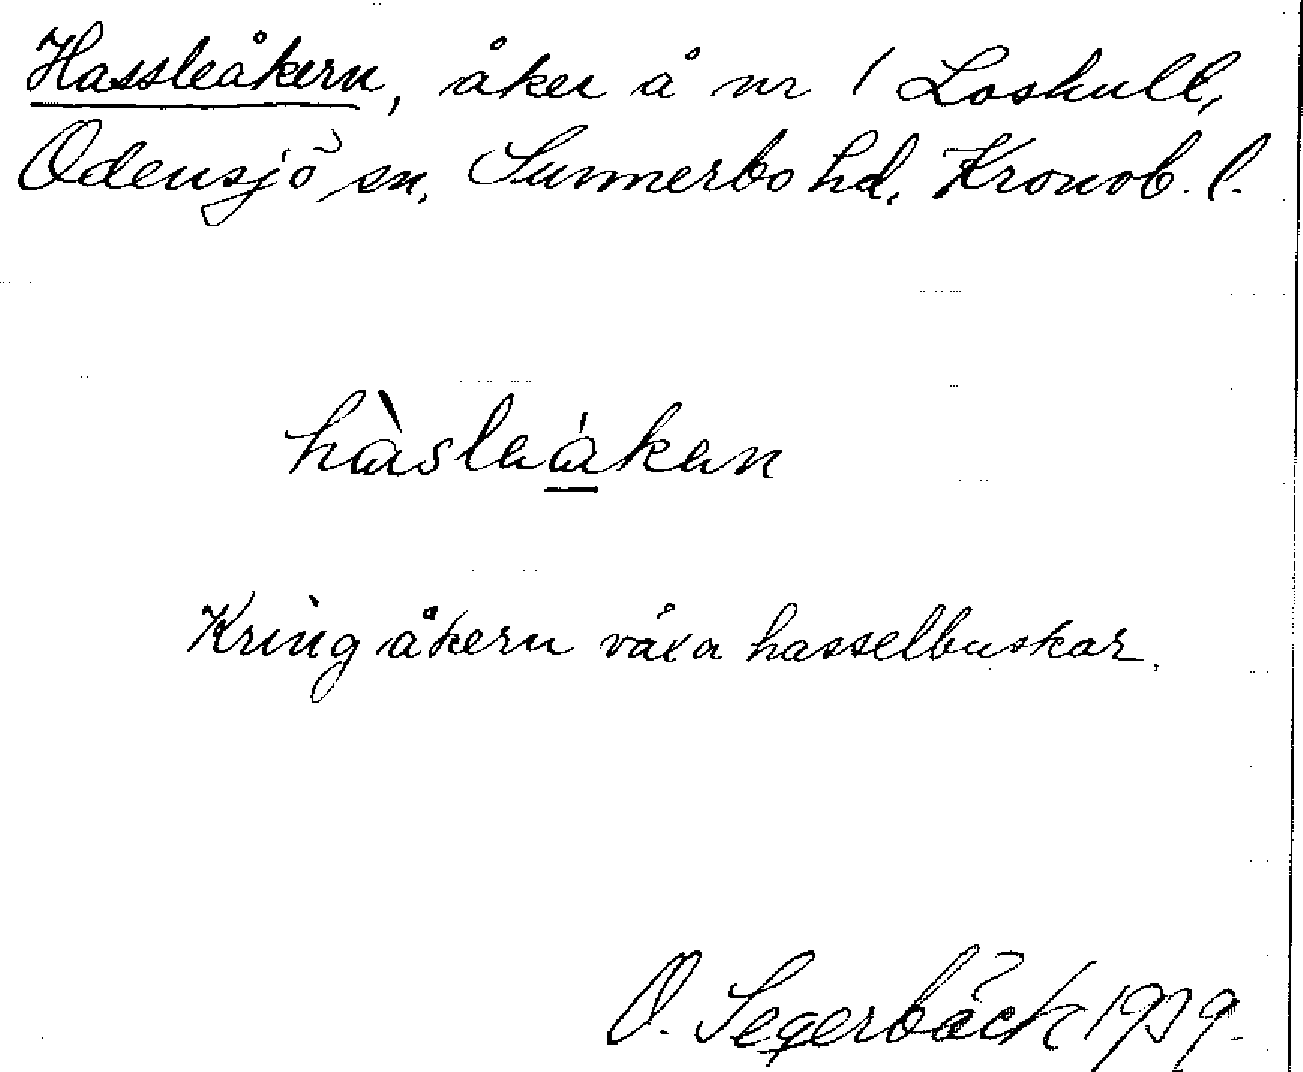 Hassleåkern, åker å nr 1 Loshult,
Odensjö sn, Sunnerbo hd, Kronob. l.
hàsleákan
Kring åkern växa hasselbuskar.
O. Segerbäck 1939.